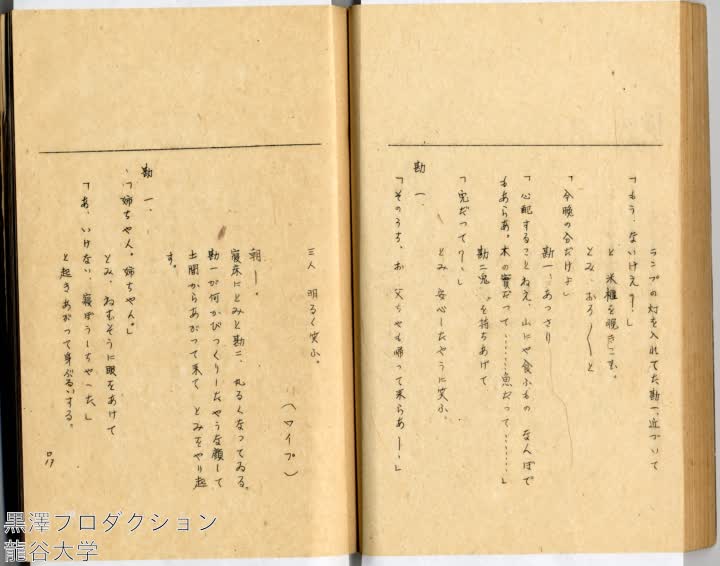 ランプの灯を入れてた勘一、近づいて
「もう、ないけえ?」
と 米櫃を覗きこむ。
とみ、おろ〳〵と
「今晩の分だけよ」
勘一、あっさり
「心配することねえ、山にや食ふもの なんぼで
もあらあ。木の實だつて……魚だつて……」
勘二 兎を持ちあげて
「兎だつて?」
とみ 安心したやうに笑ふ。
勘一、
「そのうち、お父ちやも帰つて来らあ—。」
三人 明るく笑ふ。
(ワイプ)
朝—。
寝床にとみと勘二、丸るくなつてゐる。
勘一が何かびつくりしたやうな顔して
土間からあがつて来て とみをやり起
す。
勘一、
「姉ちやん。姉ちやん。」
とみ、ねむそうに眼をあけて
「あ、いけない、寝ぼうしちやつた」
と起きあがつて身ぶるいする。
黒澤プロダクション
龍谷大学